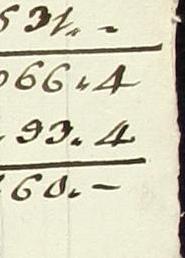 531.-
066.4
93.4
160.-